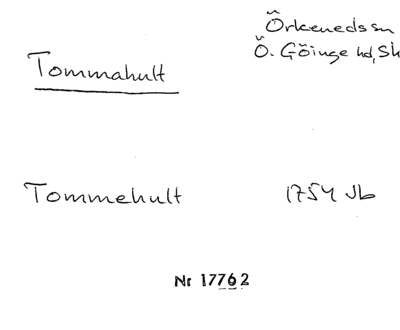 Örkenedssn
Tommahult
Ö. Göinge hd, Sk
Tommehult 1754 Jb
Nr 17762